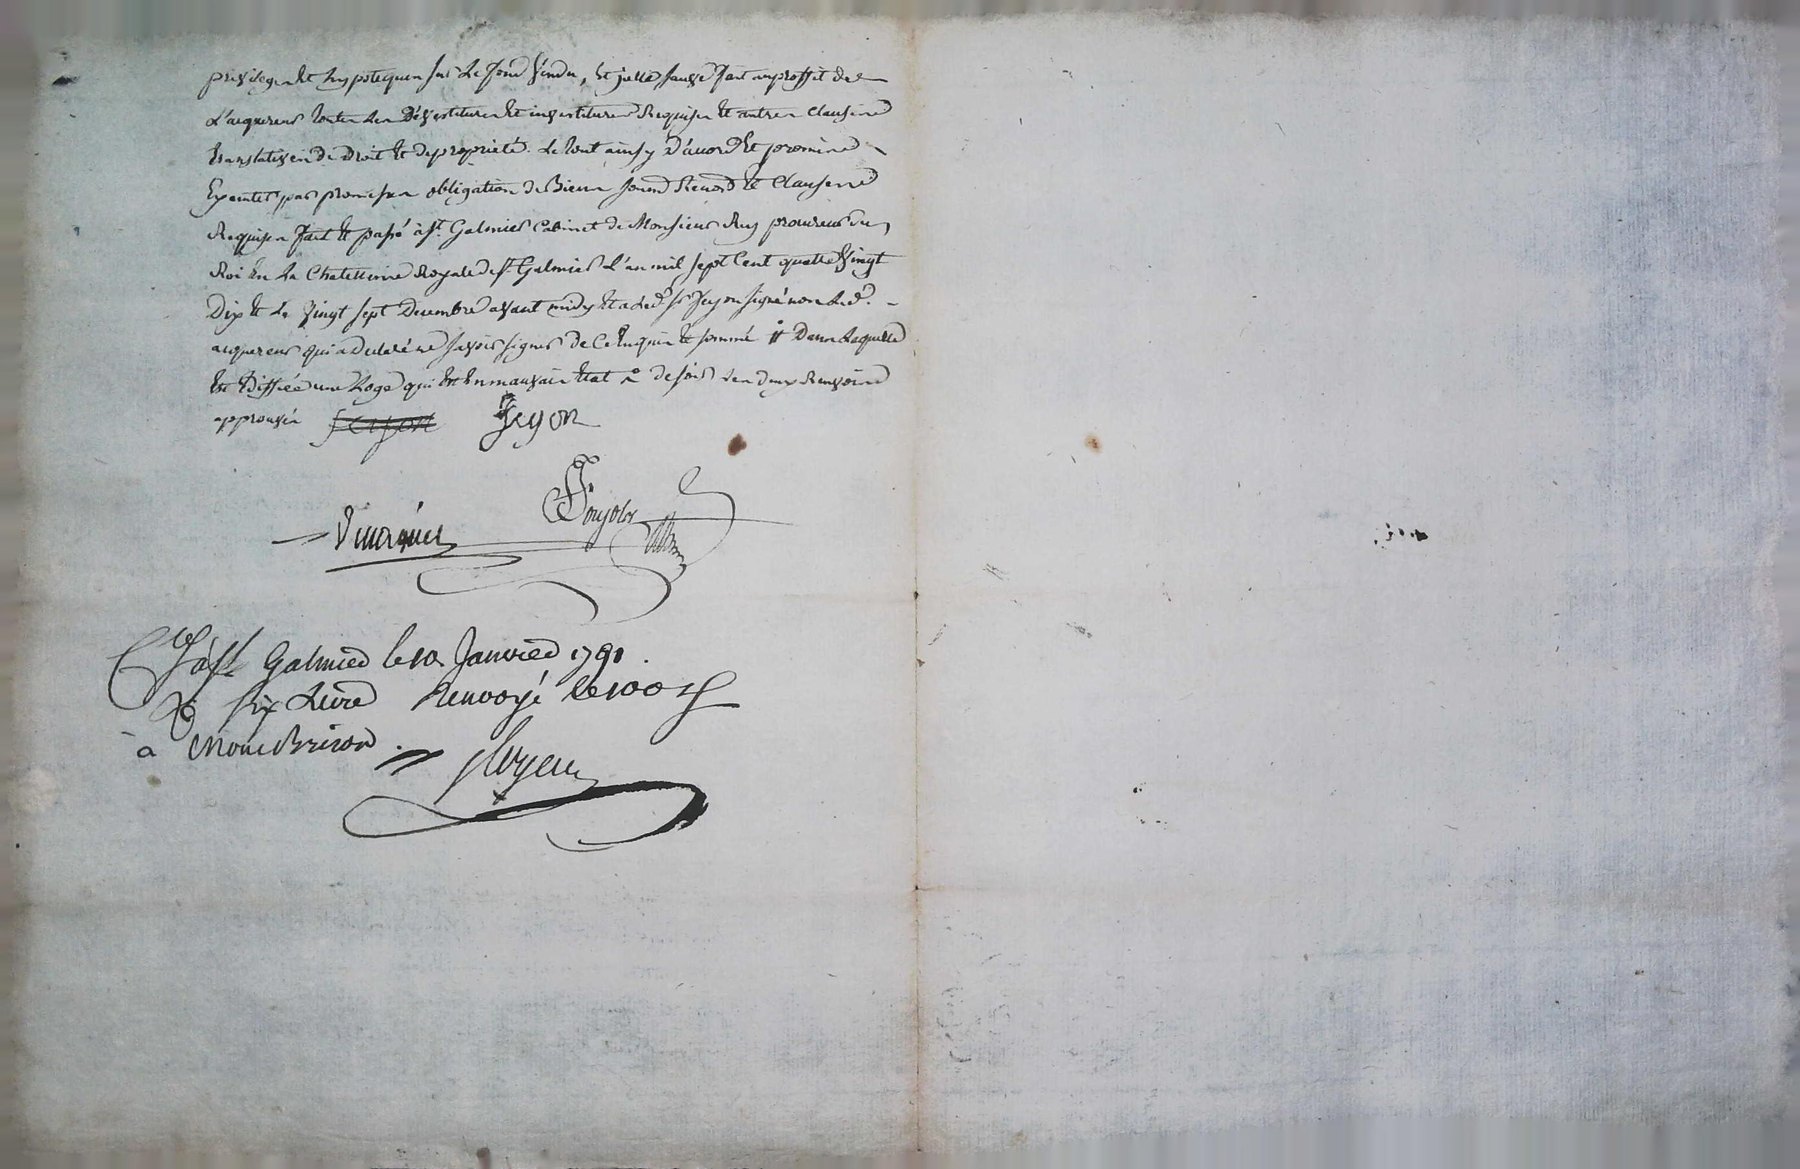 privileges et hypoteques sur Le fond Vendu, Et fait au proffit de
L'acquereur toutes Les Dévestitures et investitures Requises et autres Clauses
translatives de Droit et de propriété. Le tout ainsy D'accord et promis
Executer par promesses obligation de Biens Renond et Clauses
Requises fait et passé à St. Galmier Cabinet de Monsieur Rey procureur du
Roi En La Chatellenie Royale de St Galmier L'an mil sept Cent quattre Vingt
Dix et Le Vingt sept Decembre avant midy Et a Led. Sr Jeyon signé non Led.
acquereur qui a Declaré ne savoir signer de Ce Enquis et sommé # Dans Laquelle
Est Ediffiée une Loge qui Est En mauvais Etat les deux Renvoirs
approuvés Jeyon Jeyon
Clé à St Galmier le 10 Janvier 1791.
six Livre Renvoyé le 100
à MontBrison.